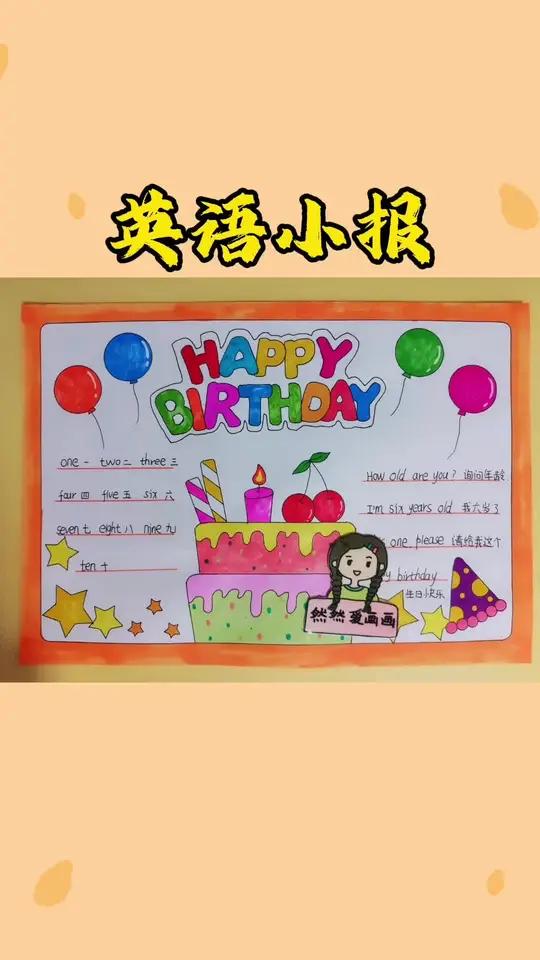 英语小报
HAPPY
BIRTHDAY
one 一 two 二 three 三
four 四 five 五 six 六
seven 七 eight 八 nine 九
ten 十
How old are you? 询问年龄
I'm six years old 我六岁了
one please 请给我这个
birthday
生日快乐
然然爱画画